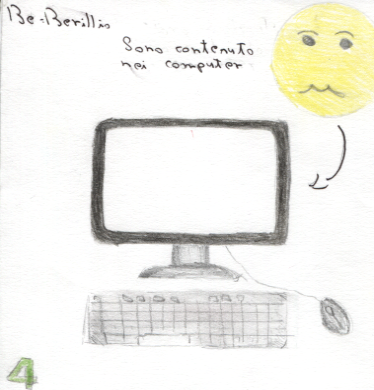 Be-Berillio
Sono contenuto
nei computer
4